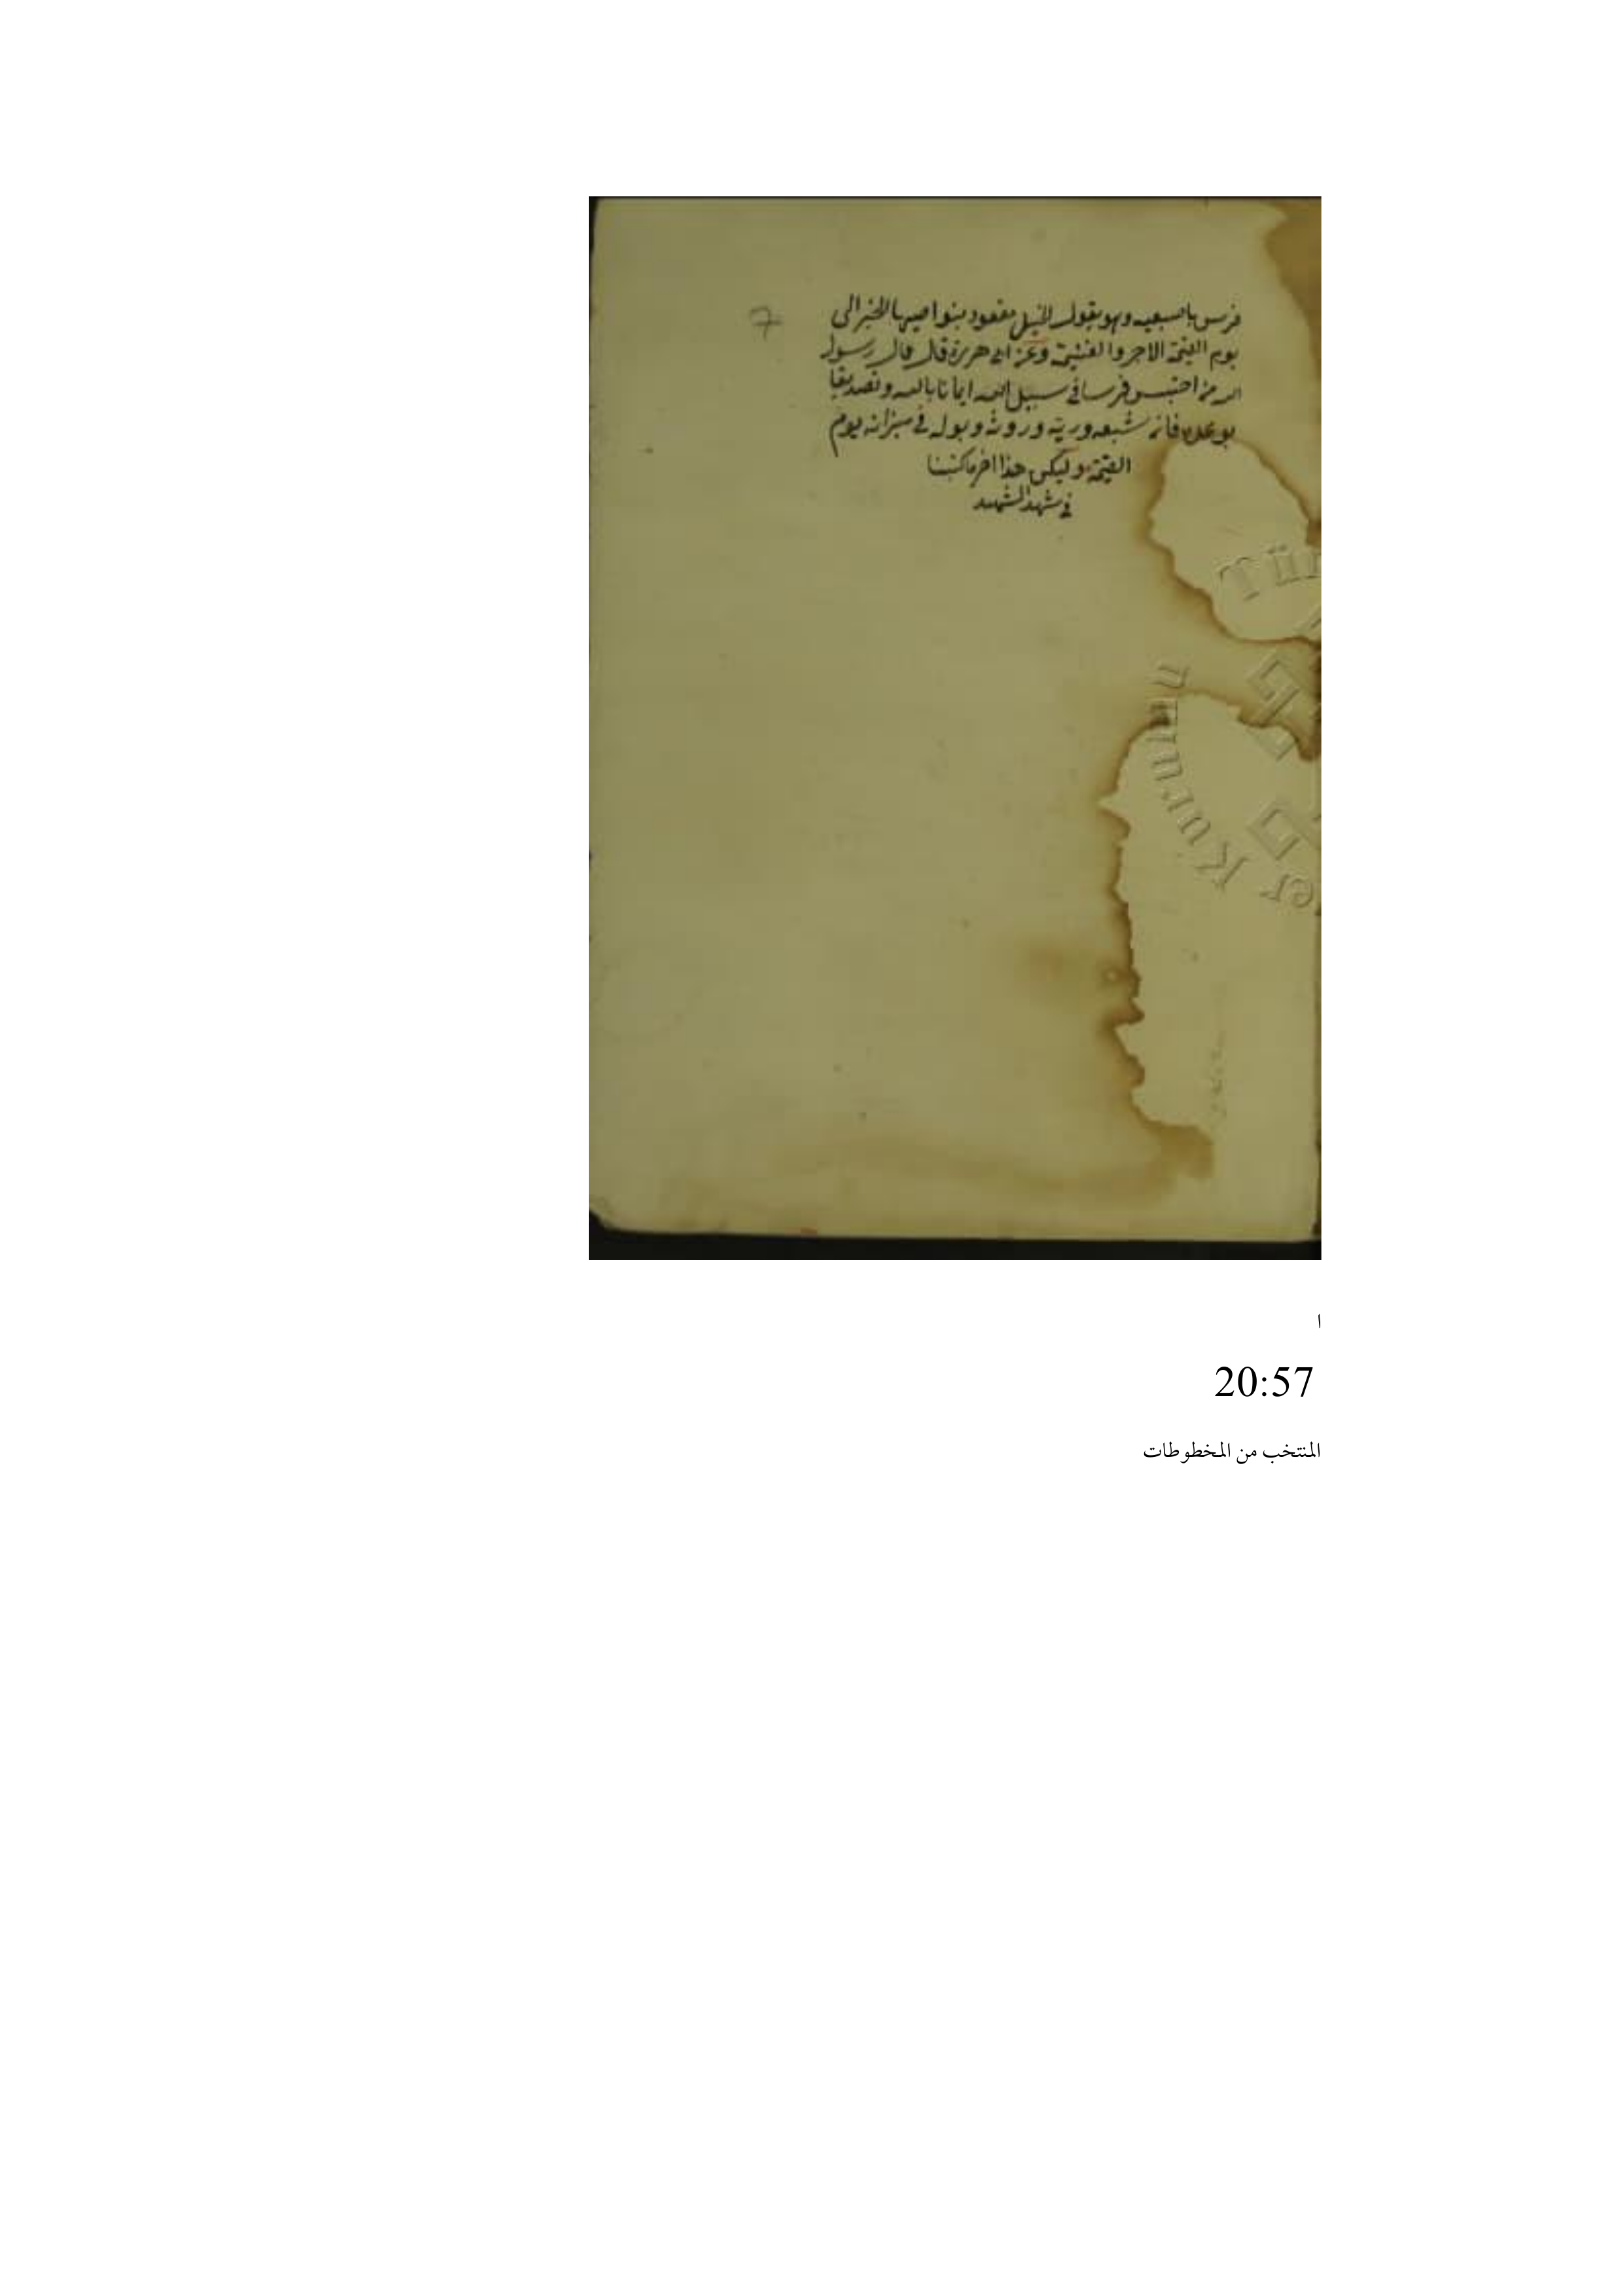 فرس باصبعيه وهو يقول الخيل معقود بنواصيها الخير الى
يوم القيمة الاجر والغنيمة وعن ابي هريرة قال قال رسول
الله من احتبس فرسا في سبيل الله ايمانا بالله وتصديقا
بوعده فان شبعه وريه وروثه وبوله في ميزانه يوم
القيمة وليكن هذا اخر ما كتبنا
في
Tür
er Kurumu
ا
20:57
المنتخب من المخطوطات